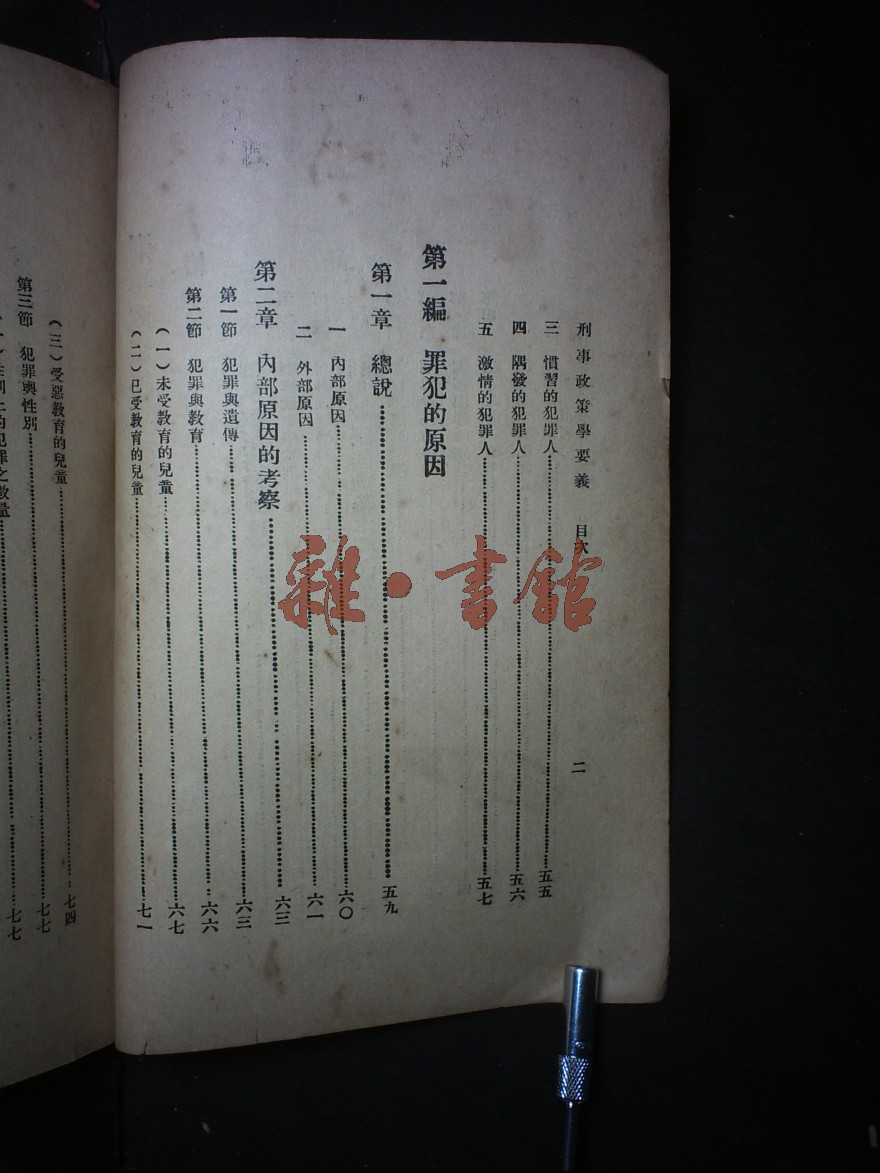 刑事政策學要義　目次　二
三　慣習的犯罪人……五五
四　隅發的犯罪人……五六
五　激情的犯罪人……五七
第一編　罪犯的原因
第一章　總說……五九
一　內部原因……六〇
二　外部原因……六一
第二章　內部原因的考察……六三
第一節　犯罪與遺傳……六三
第二節　犯罪與教育……六六
（一）未受教育的兒童……六七
（二）已受教育的兒童……七一
（三）受惡教育的兒童……七四
第三節　犯罪與性別……七七
的犯罪之數量……七七
雜·書館